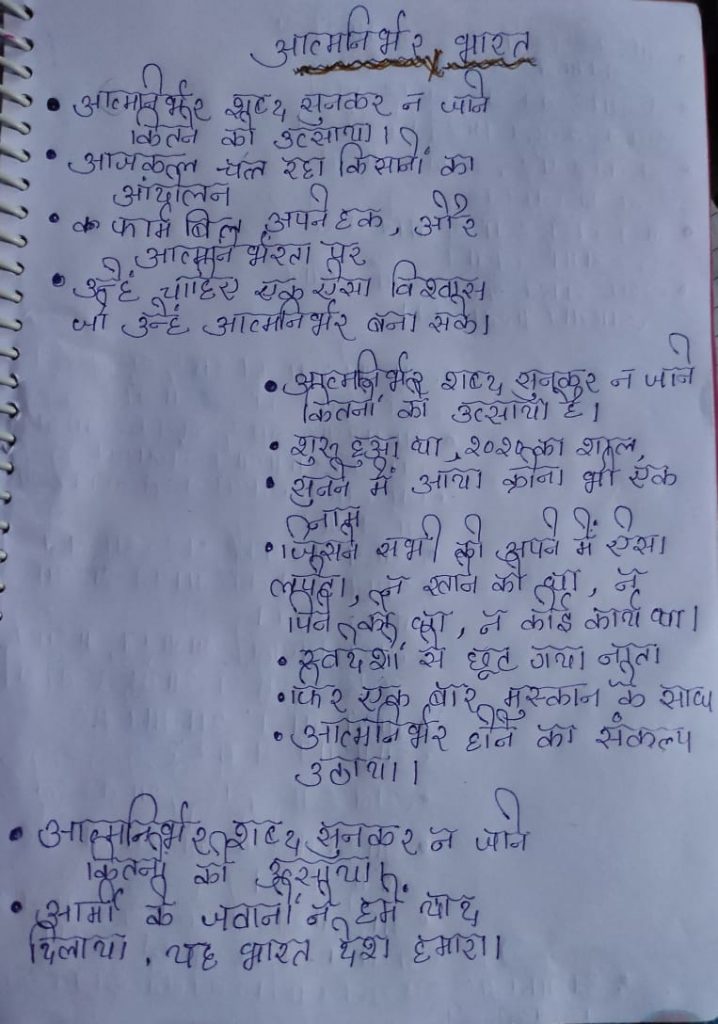 आत्मनिर्भर भारत
• आत्मनिर्भर शब्द सुनकर न जाने
कितने को उत्साया।
• आजकल चल रहा किसानों का
आंदोलन
• फार्म बिल अपने हक, और
आत्मनिर्भरता पर
• उन्हें चाहिए एक ऐसा विश्वास
जो उन्हें आत्मनिर्भर बना सके।
• आत्मनिर्भर शब्द सुनकर न जाने
कितनों को उत्साया है।
• शुरू हुआ था, २०२० का साल,
• सुनने में आया क्रोना भी एक
नाम
• जिसने सभी को अपने में ऐसा
लपेटा, न खाने को था, न
पिने को था, न कोई कार्य था।
• स्वदेशी से छूट गया नाता
• फिर एक बार मुस्कान के साथ
• आत्मनिर्भर होने का संकल्प
उठाया।
• आत्मनिर्भर शब्द सुनकर न जाने
कितनों को
• आर्मी के जवानों ने हमें याद
दिलाया, यह भारत देश हमारा।